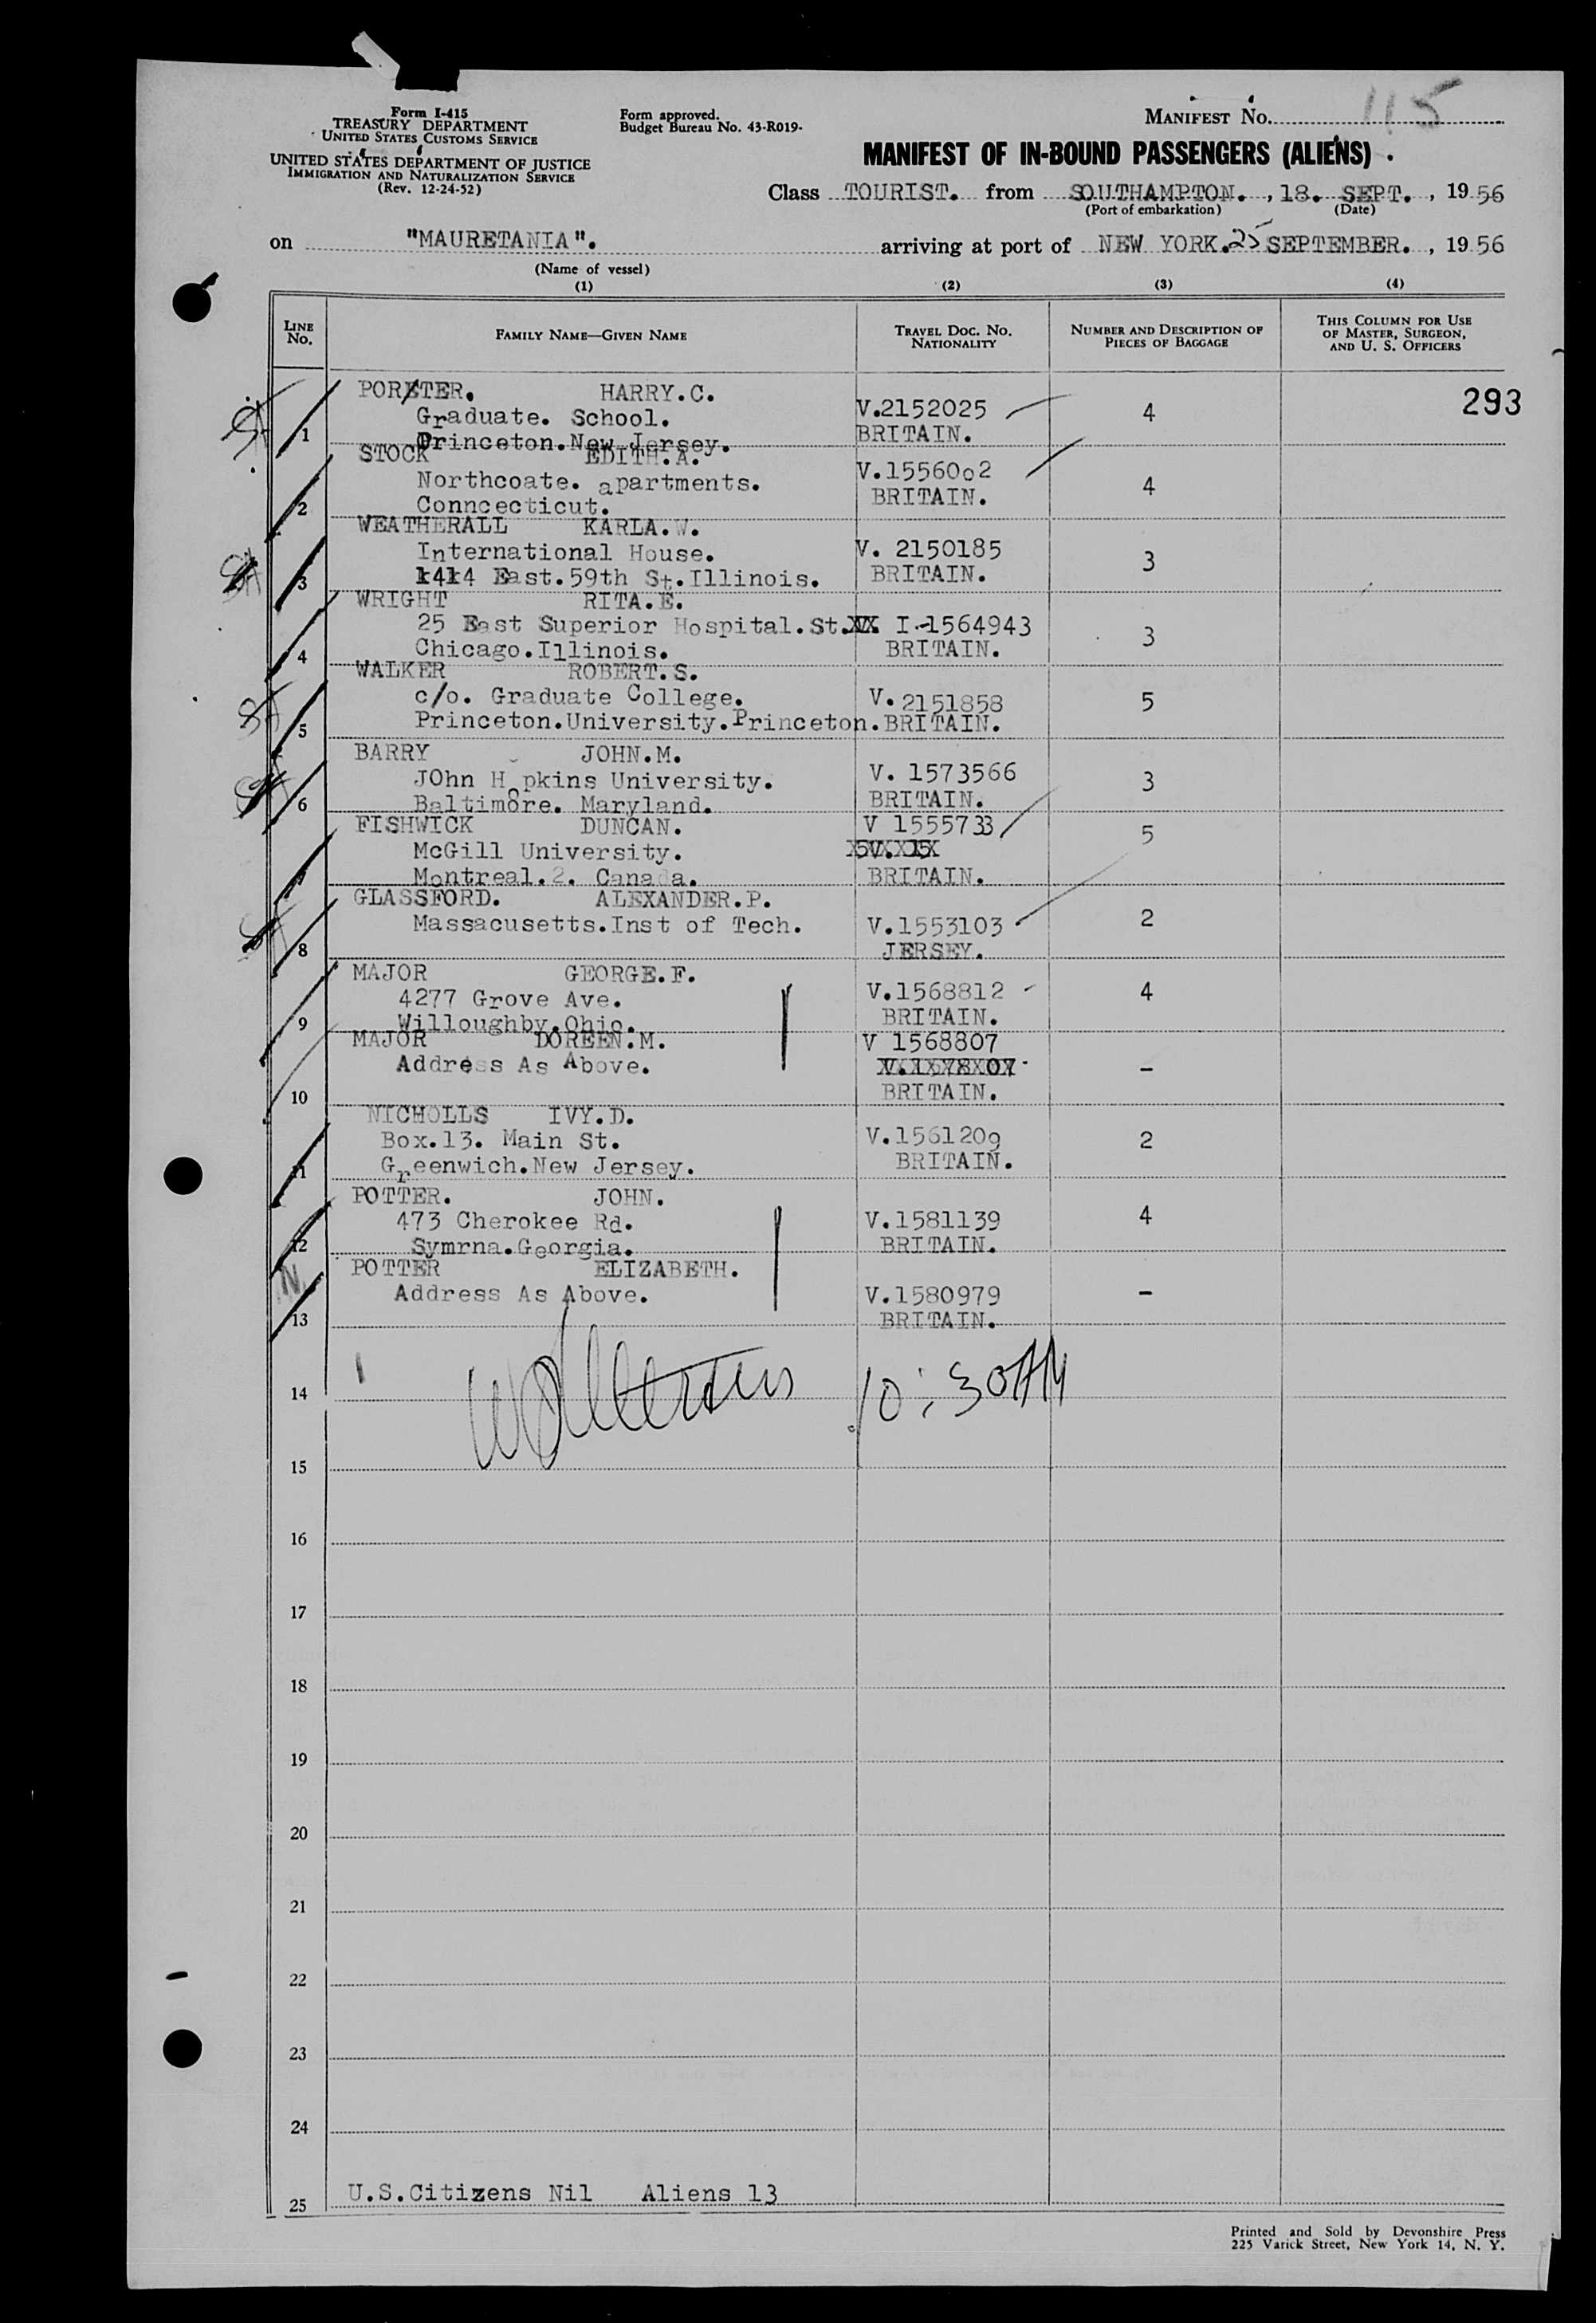 Form I-415
TREASURY DEPARTMENT
UNITED STATES CUSTOMS SERVICE
UNITED STATES DEPARTMENT OF JUSTICE
IMMIGRATION AND NATURALIZATION SERVICE
(Rev. 12-24-52)
Form approved.
Budget Bureau No. 43-R019-
MANIFEST NO. 115
MANIFEST OF IN-BOUND PASSENGERS (ALIENS)
Class TOURIST. from SOUTHAMPTON. , 18. SEPT. , 1956
(Port of embarkation) (Date)
on "MAURETANIA". arriving at port of NEW YORK. 25 SEPTEMBER. , 1956
(Name of vessel)
(1) (2) (3) (4)
LINE NO. FAMILY NAME—GIVEN NAME TRAVEL DOC. NO. NATIONALITY NUMBER AND DESCRIPTION OF PIECES OF BAGGAGE THIS COLUMN FOR USE OF MASTER, SURGEON, AND U. S. OFFICERS
293
PORTER. HARRY.C.
Graduate. School. V.2152025 4
1 Princeton.New Jersey. BRITAIN.
STOCK EDITH.A.
Northcoate. apartments. V.1556002 4
2 Conncecticut. BRITAIN.
WEATHERALL KARLA.W.
International House. V. 2150185 3
3 1414 East.59th St.Illinois. BRITAIN.
WRIGHT RITA.E.
25 East Superior Hospital.St. I.-1564943 3
4 Chicago.Illinois. BRITAIN.
WALKER ROBERT.S.
c/o. Graduate College. V.2151858 5
5 Princeton.University.Princeton. BRITAIN.
BARRY JOHN.M.
JOhn Hopkins University. V. 1573566 3
6 Baltimore. Maryland. BRITAIN.
FISHWICK DUNCAN. V 1555733 5
McGill University.
Montreal.2. Canada. BRITAIN.
GLASSFORD. ALEXANDER.P.
Massacusetts.Inst of Tech. V.1553103 2
8 JERSEY.
MAJOR GEORGE.F.
4277 Grove Ave. V.1568812 4
9 Willoughby.Ohio. BRITAIN.
MAJOR DOREEN.M. V 1568807
Address As Above. -
10 BRITAIN.
NICHOLLS IVY.D.
Box.13. Main St. V.1561209 2
11 Greenwich.New Jersey. BRITAIN.
POTTER. JOHN.
473 Cherokee Rd. V.1581139 4
12 Symrna.Georgia. BRITAIN.
N.
POTTER ELIZABETH.
Address As Above. V.1580979 -
13 BRITAIN.
14 10:30AM
15
16
17
18
19
20
21
22
23
24
25 U.S.Citizens Nil Aliens 13
Printed and Sold by Devonshire Press
225 Varick Street, New York 14, N. Y.